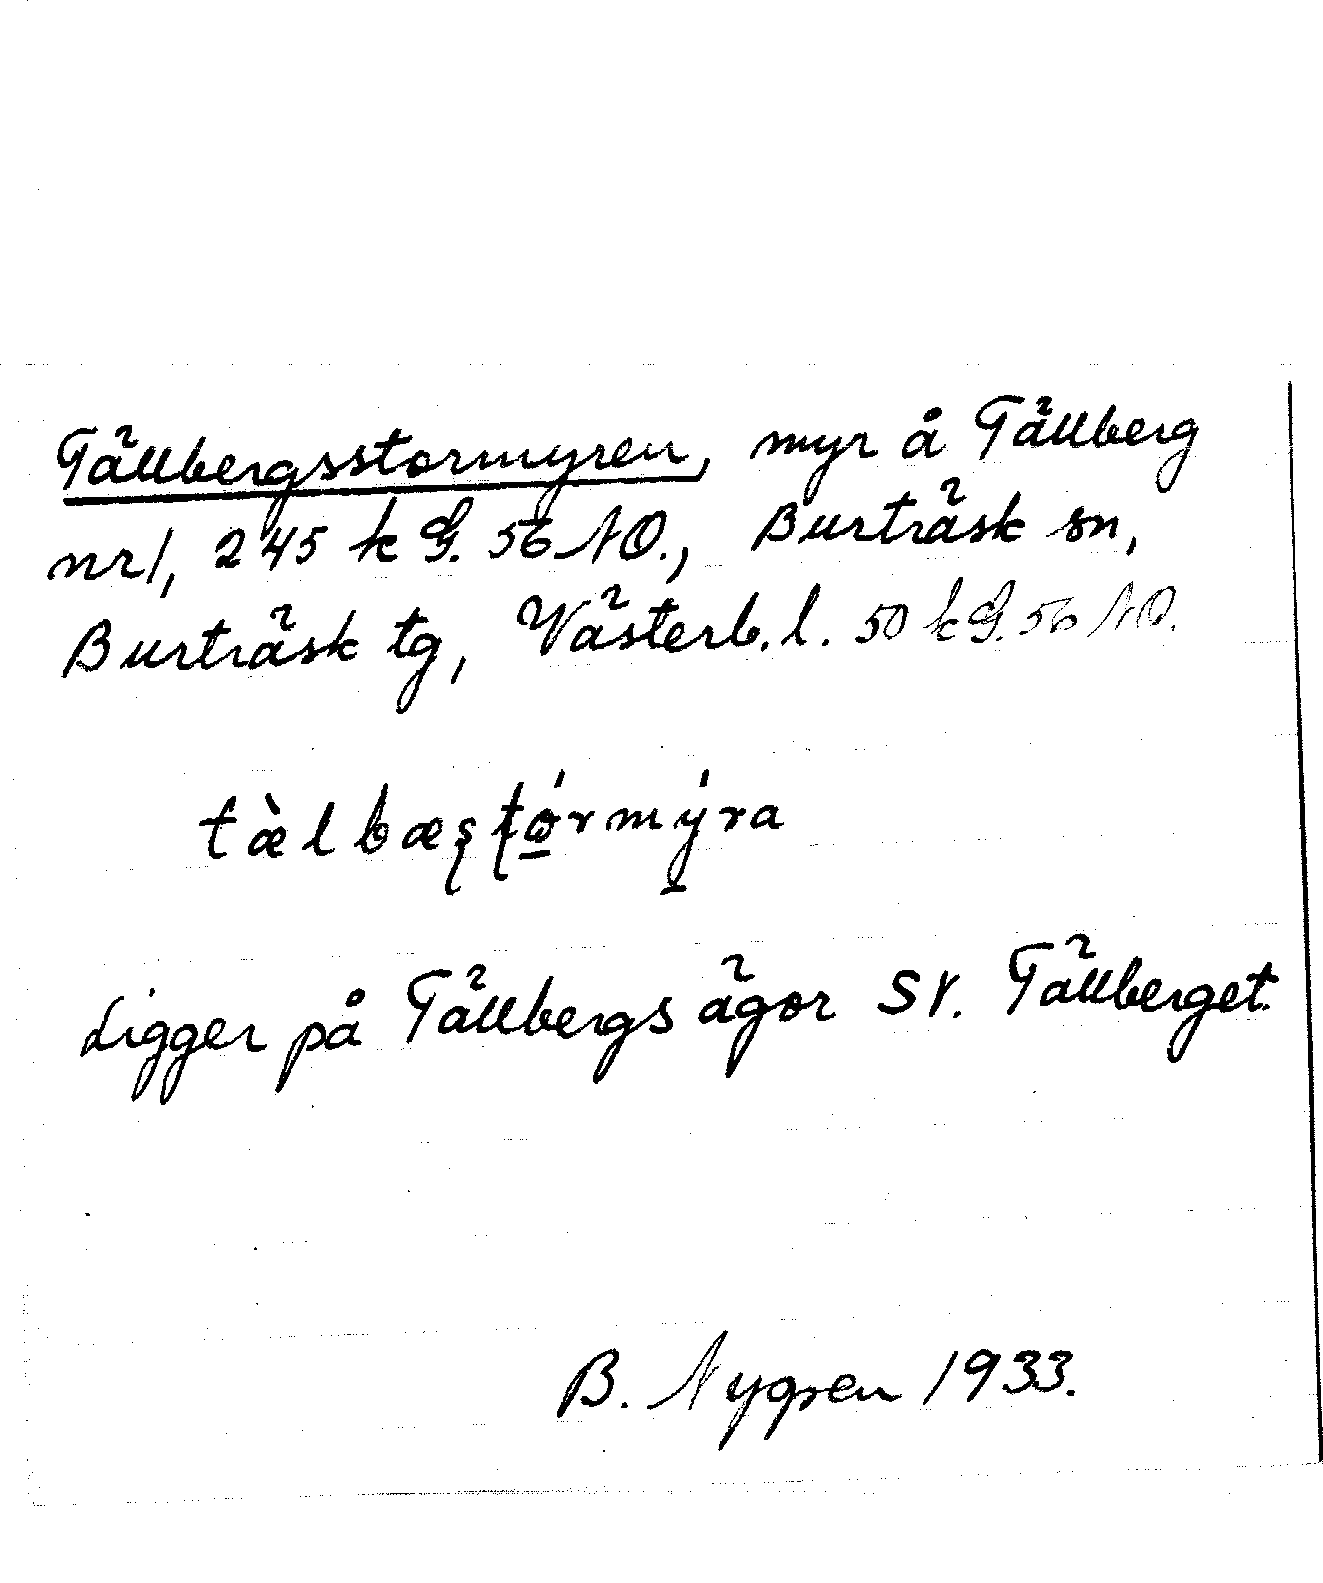 Tällbergsstormyren, myr å Tällberg
nr 1, 245 k G. 56 NO., Burträsk sn,
Burträsk tg, Västerb. l. 50 k G. 56 NO.
tæ̀lbæʂʈo̲ŕmý̲ra
Ligger på Tällbergs ägor SV. Tällberget.
B. Nygren 1933.